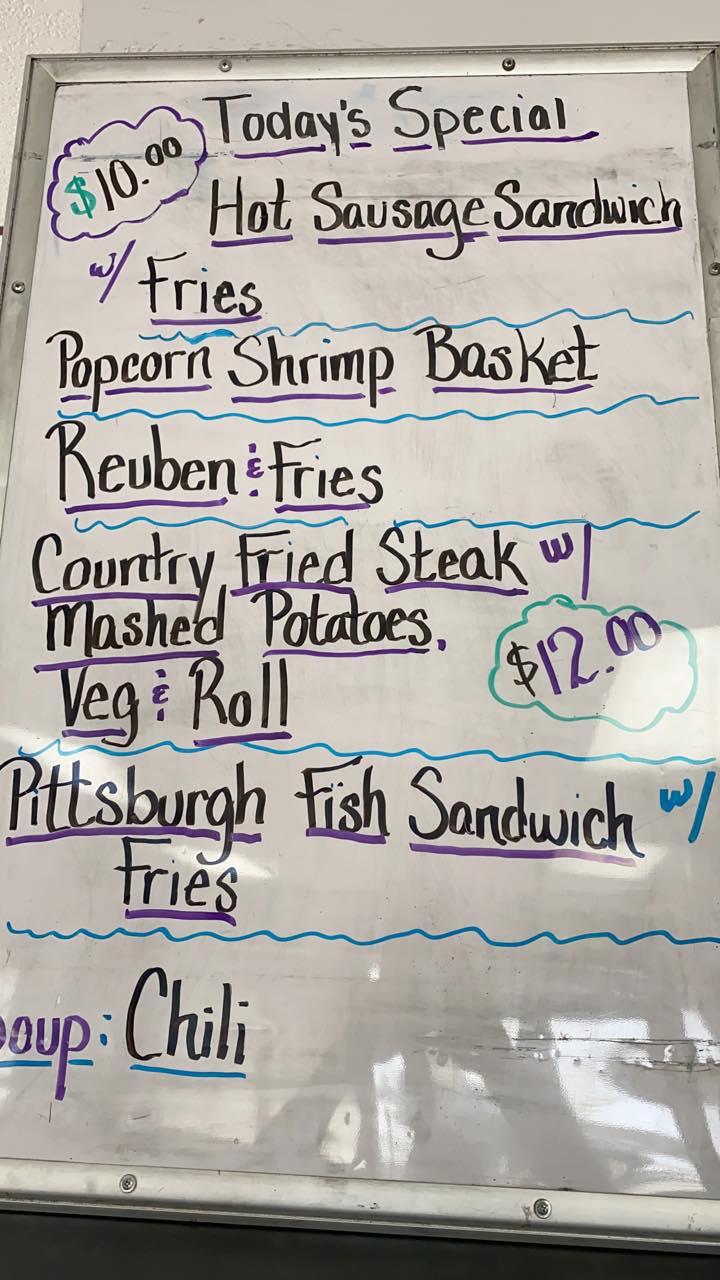 Today's Special
$10.00
Hot Sausage Sandwich
w/ Fries
Popcorn Shrimp Basket
Reuben & Fries
Country Fried Steak w/
Mashed Potatoes,
$12.00
Veg & Roll
Pittsburgh Fish Sandwich w/
Fries
oup: Chili